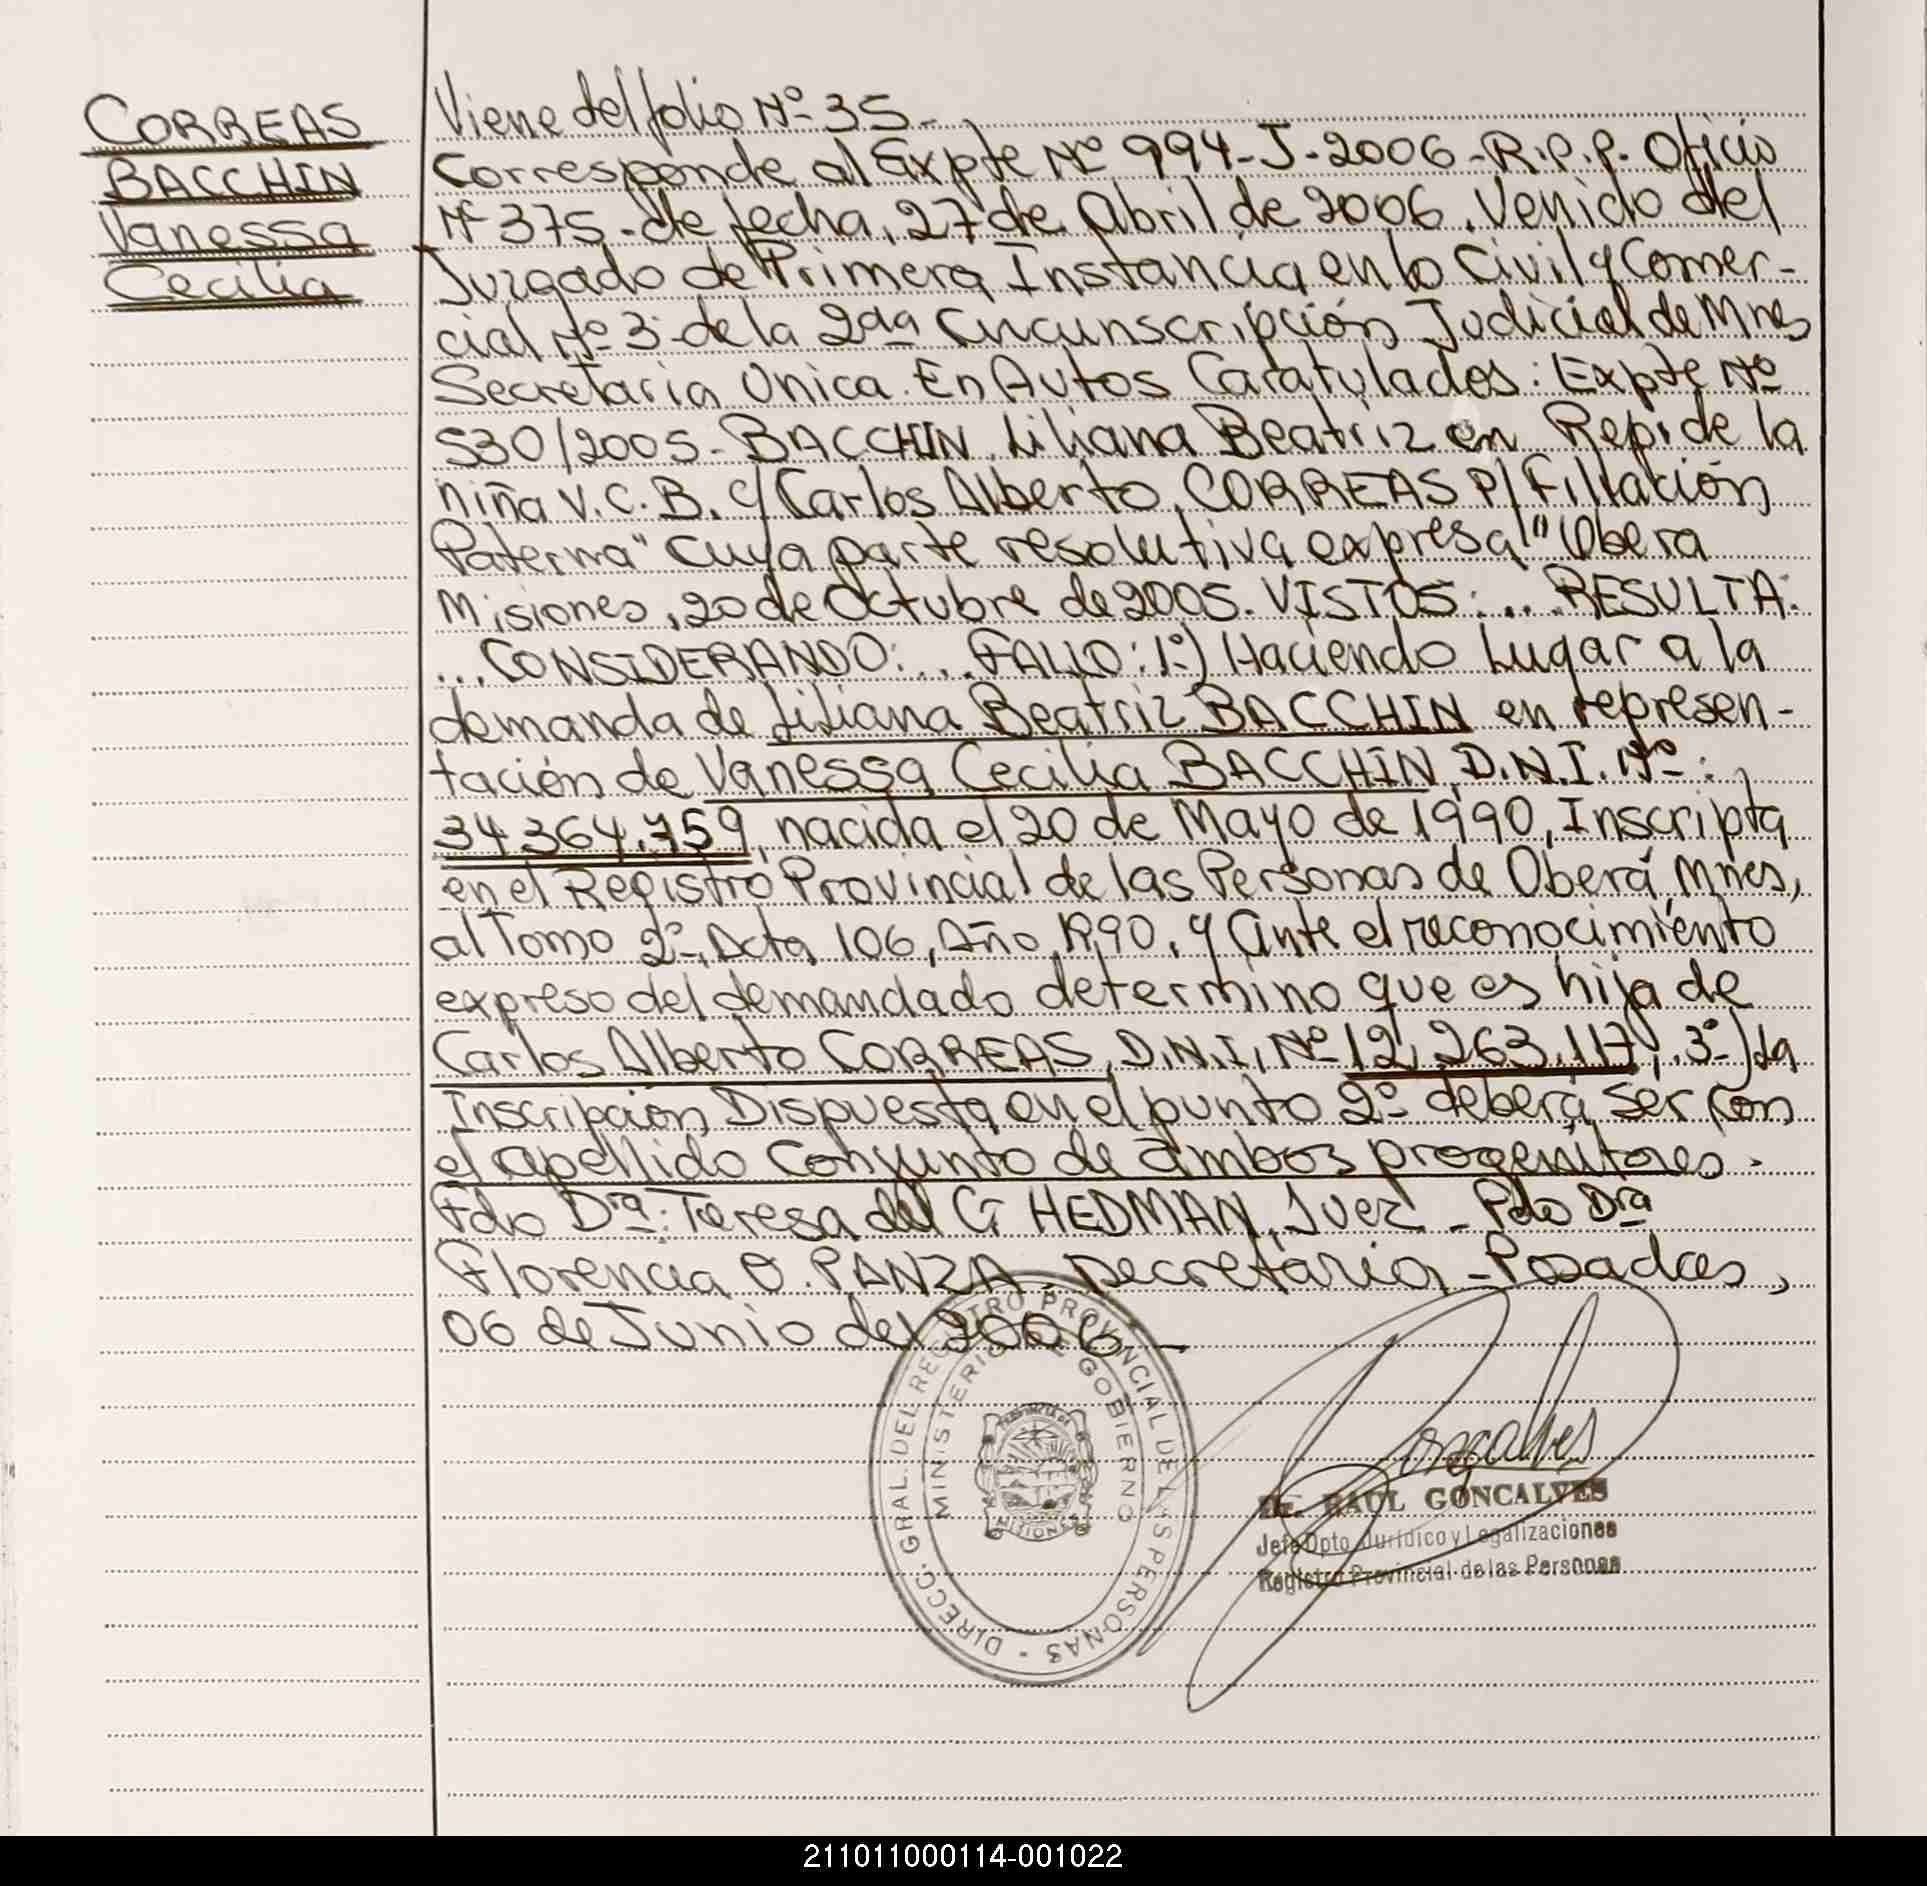 CORREAS
BACCHIN
Vanessa
Cecilia
Viene del folio Nº 35.-
Corresponde al Expte Nº 994-J-2006-R.P.P. Oficio
Nº 375.-de fecha, 27 de Abril de 2006. Venido del
Juzgado de Primera Instancia en lo Civil y Comer-
cial Nº 3 de la 2da Circunscripción Judicial de Mnes
Secretaria Unica. En Autos Caratulados: Expte Nº
530/2005.- BACCHIN Liliana Beatriz en Rep. de la
niña V.C.B. c/ Carlos Alberto CORREAS P/ Filiación
Paterna" cuya parte resolutiva expresa: "Obera
Misiones, 20 de Octubre de 2005. VISTOS:... RESULTA:
...CONSIDERANDO:... FALLO: 1º) Haciendo Lugar a la
demanda de Liliana Beatriz BACCHIN en represen-
tación de Vanessa Cecilia BACCHIN, D.N.I. Nº:
34.364.759, nacida el 20 de Mayo de 1990, Inscripta
en el Registro Provincial de las Personas de Oberá, Mnes,
al Tomo 2º, Acta 106, Año 1990, y ante el reconocimiento
expreso del demandado determino que es hija de
Carlos Alberto CORREAS, D.N.I. Nº 12.263.117, .3º) La
Inscripción Dispuesta en el punto 2º deberá ser con
el apellido conjunto de ambos progenitores.
Fdo Dra: Teresa del G HEDMAN, Juez - Fdo Dra
Florencia O. PANZA, Secretaria - Posadas,
06 de Junio del 2006.-
DIRECC. GRAL. DEL REGISTRO PROVINCIAL DE LAS PERSONAS -
MINISTERIO DE GOBIERNO
PROVINCIA DE
MISIONES
Goncalves
Dr. RAUL GONCALVES
Jefe Dpto Jurídico y Legalizaciones
Registro Provincial de las Personas
211011000114-001022